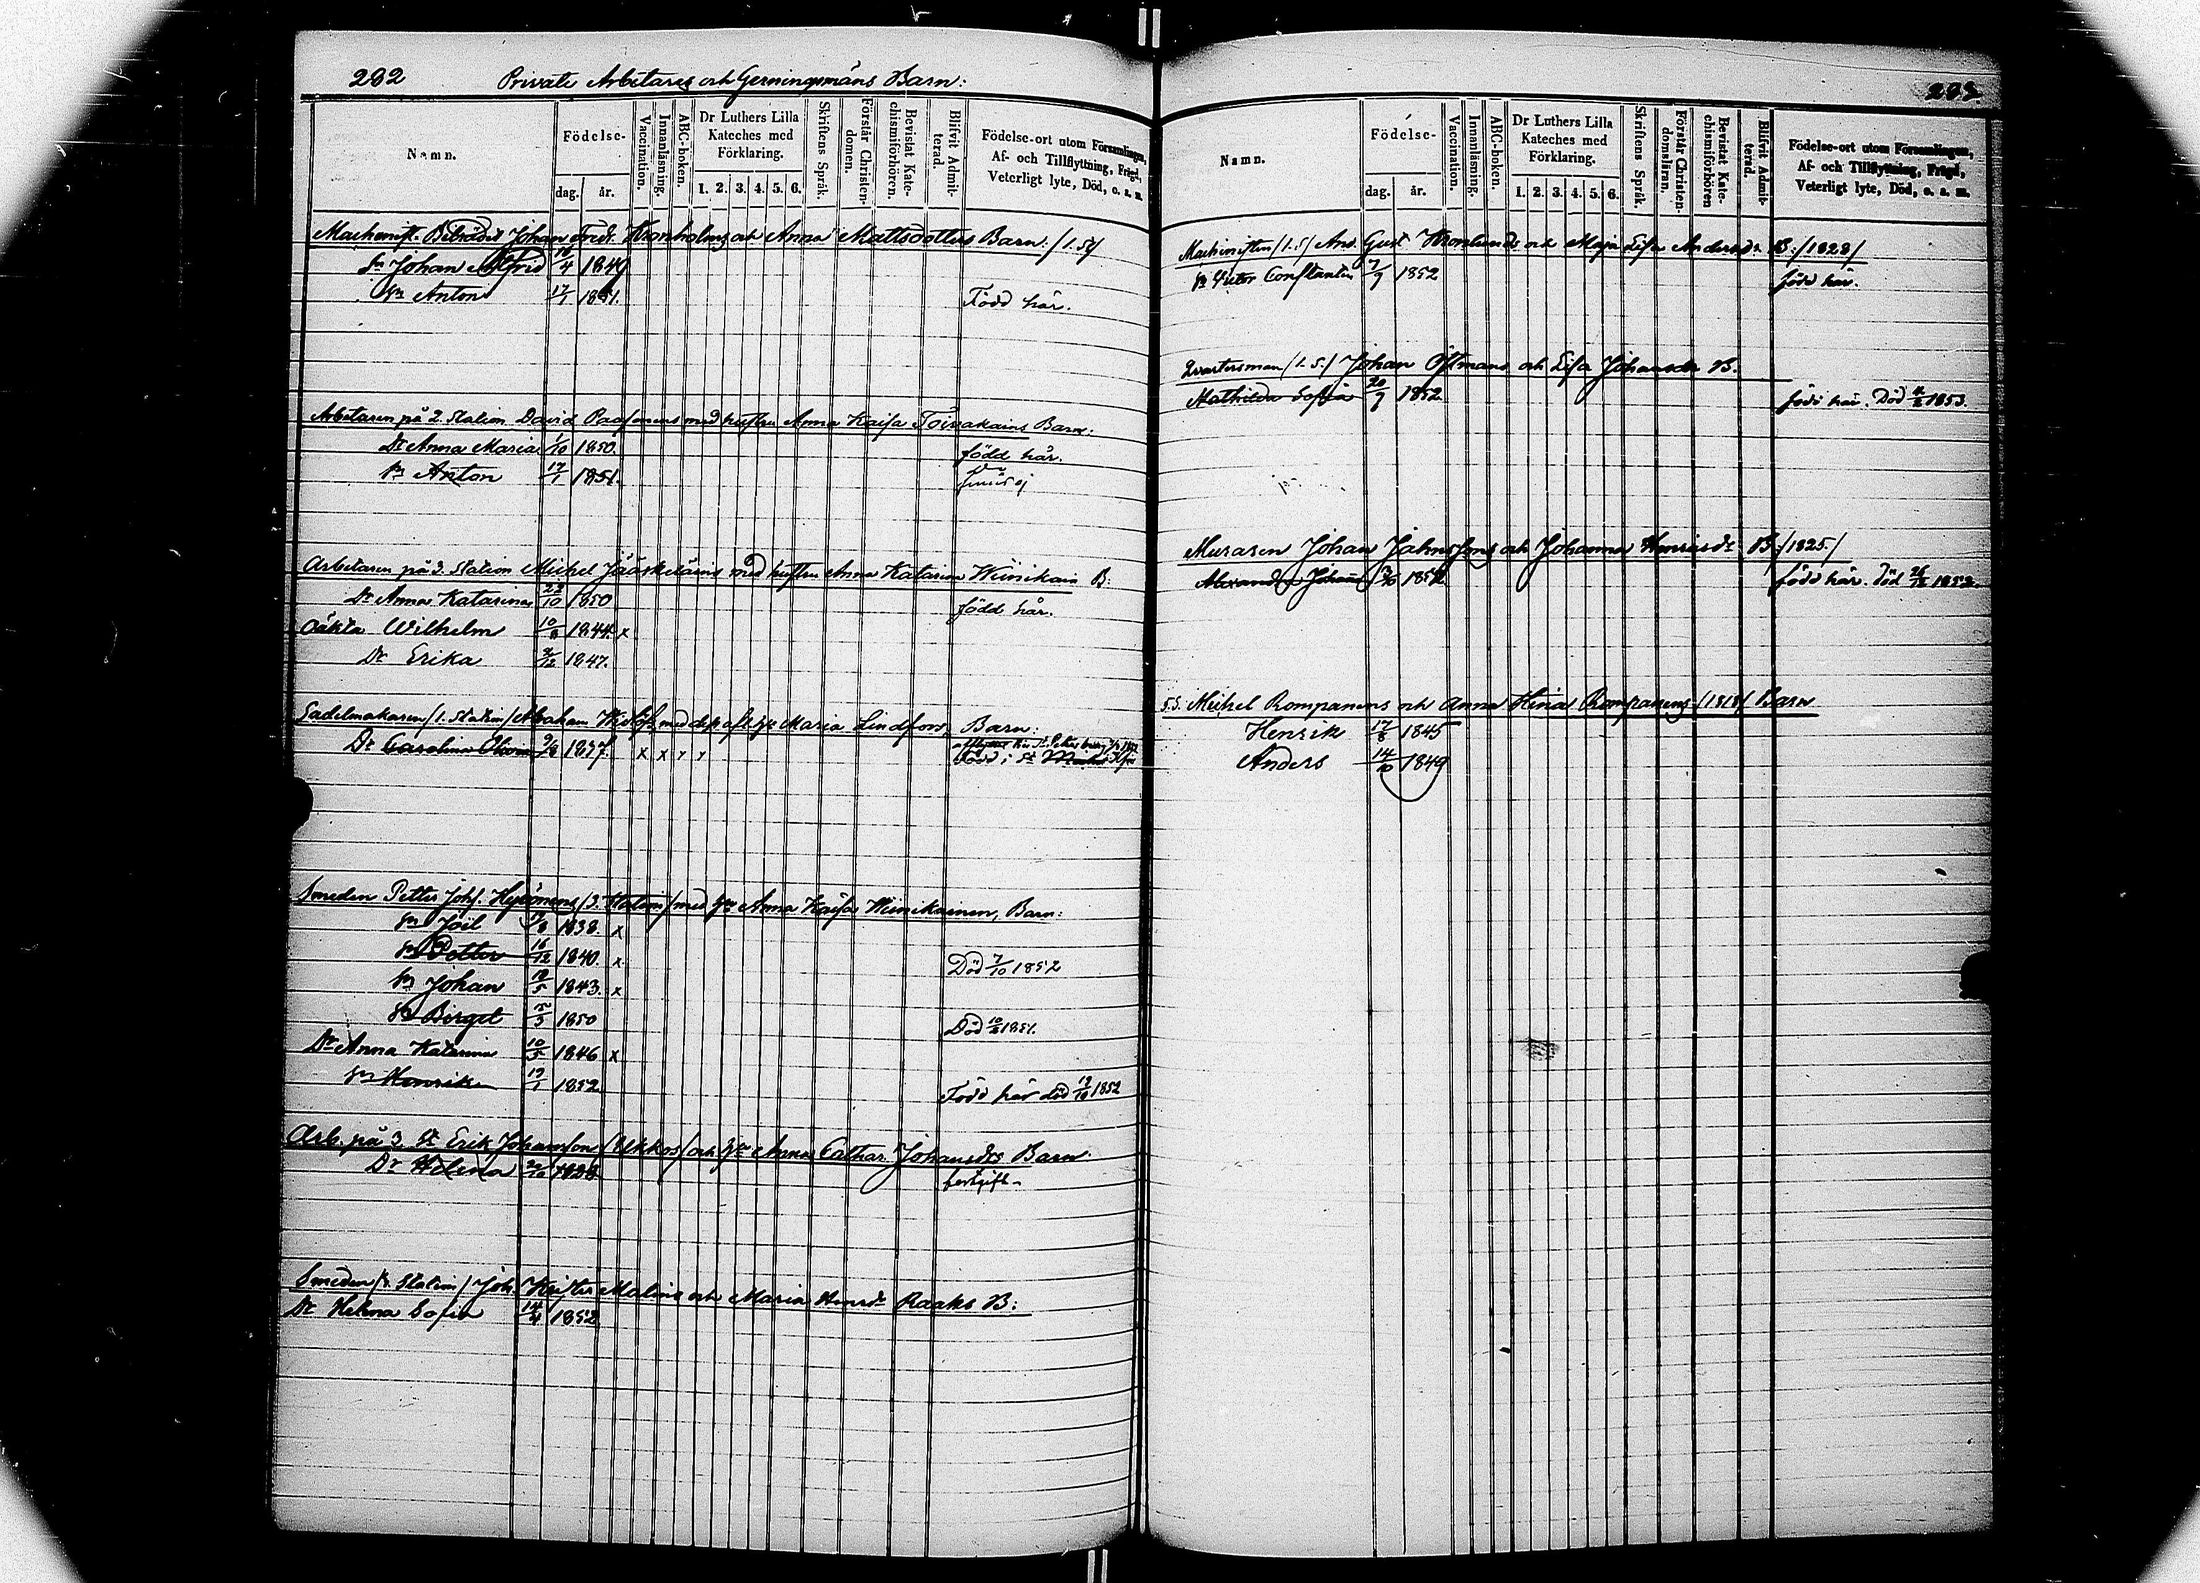 282 Private Arbetares och Gerningsmäns Barn:
Namn.
Födelse-
dag. år.
Vaccination.
Innanläsning.
ABC-boken.
Dr Luthers Lilla
Kateches med
Förklaring.
1. 2. 3. 4. 5. 6.
Skriftens Språk.
Förstår Christen-
domen.
Bevistat Kate-
chismiförhören.
Blifvit Admit-
terad.
Födelse-ort utom Församlingen,
Af- och Tillflyttning, Frägd,
Veterligt lyte, Död, o. s. m.
Machinist Johan Fredr. Kronholms och Anna Mattsdotters Barn: /1.S/
Sn Johan Alfrid /4 1849
Sn Anton 17/1 1851. Född här.
Arbetaren på 2. Station David Paasonens med hustru Anna Kaisa Toivakains Barn:
Dr Anna Maria 1/10 1850. född här.
Sn Anton 17/1 1851.
Arbetaren på 3. Station Michel Jääskeläins med hustru Anna Katarina Weinikain B:
Dr Anna Katarina 23/10 1850 född här.
Oäkta Wilhelm 10/8 1844. x
Dr Erika 2/12 1847.
Sadelmakaren /1. Station/ Abraham med Maria Lindfors, Barn:
Dr Carolina 9/8 1837. x x
Född i St
Smeden Petter Joh. /3. Station/ med hu Anna Kaisa Weinikainen, Barn:
Sn Joel /8 1838. x
Sn Petter 16/12 1840 x Död 7/10 1852
Sn Johan 18/5 1843. x
Birget 5/3 1850 Död 10/ 1851.
Dr Anna Katarina 10/5 1846 x
Sn Henrik 19/1 1852 Född här död 19/10 1852
Arb. på 3. St Erik Johansson /Ukkos/ och Anna Cathar. Johansdrs Barn
Dr Helena /10 1828
Smeden / Station/ Joh. Malins och Maria Henrdr Raaks B:
Dr Helena Sofia 14/4 1852
283
Namn.
Födelse-
dag. år.
Vaccination.
Innanläsning.
ABC-boken.
Dr Luthers Lilla
Kateches med
Förklaring.
1. 2. 3. 4. 5. 6.
Skriftens Språk
Förstår Christen-
domsläran.
Bevistat Kate-
chismiförhören
Blifvit Admit-
terad.
Födelse-ort utom Församlingen,
Af- och Tillflyttning, Frägd,
Veterligt lyte, Död, o. s. m.
Machinisten /1.S/ And. Gust. Kronlunds och Maja Lisa Andersdr B: /1828/
Sn Victor Constantin 7/9 1852 född här.
Qvartersman /1.S./ Johan Östmans och Lisa Johansdr B.
Mathilda Sofia 20/9 1852 född här. Död 1853.
Muraren Johan och Johanna Henriksdr B /1825./
född här. Död 26/12 1852
5.S. Michel Rompanens och Anna Hina Rompanens /1818/ Barn
Henrik 17/8 1845
Anders 14/10 1849